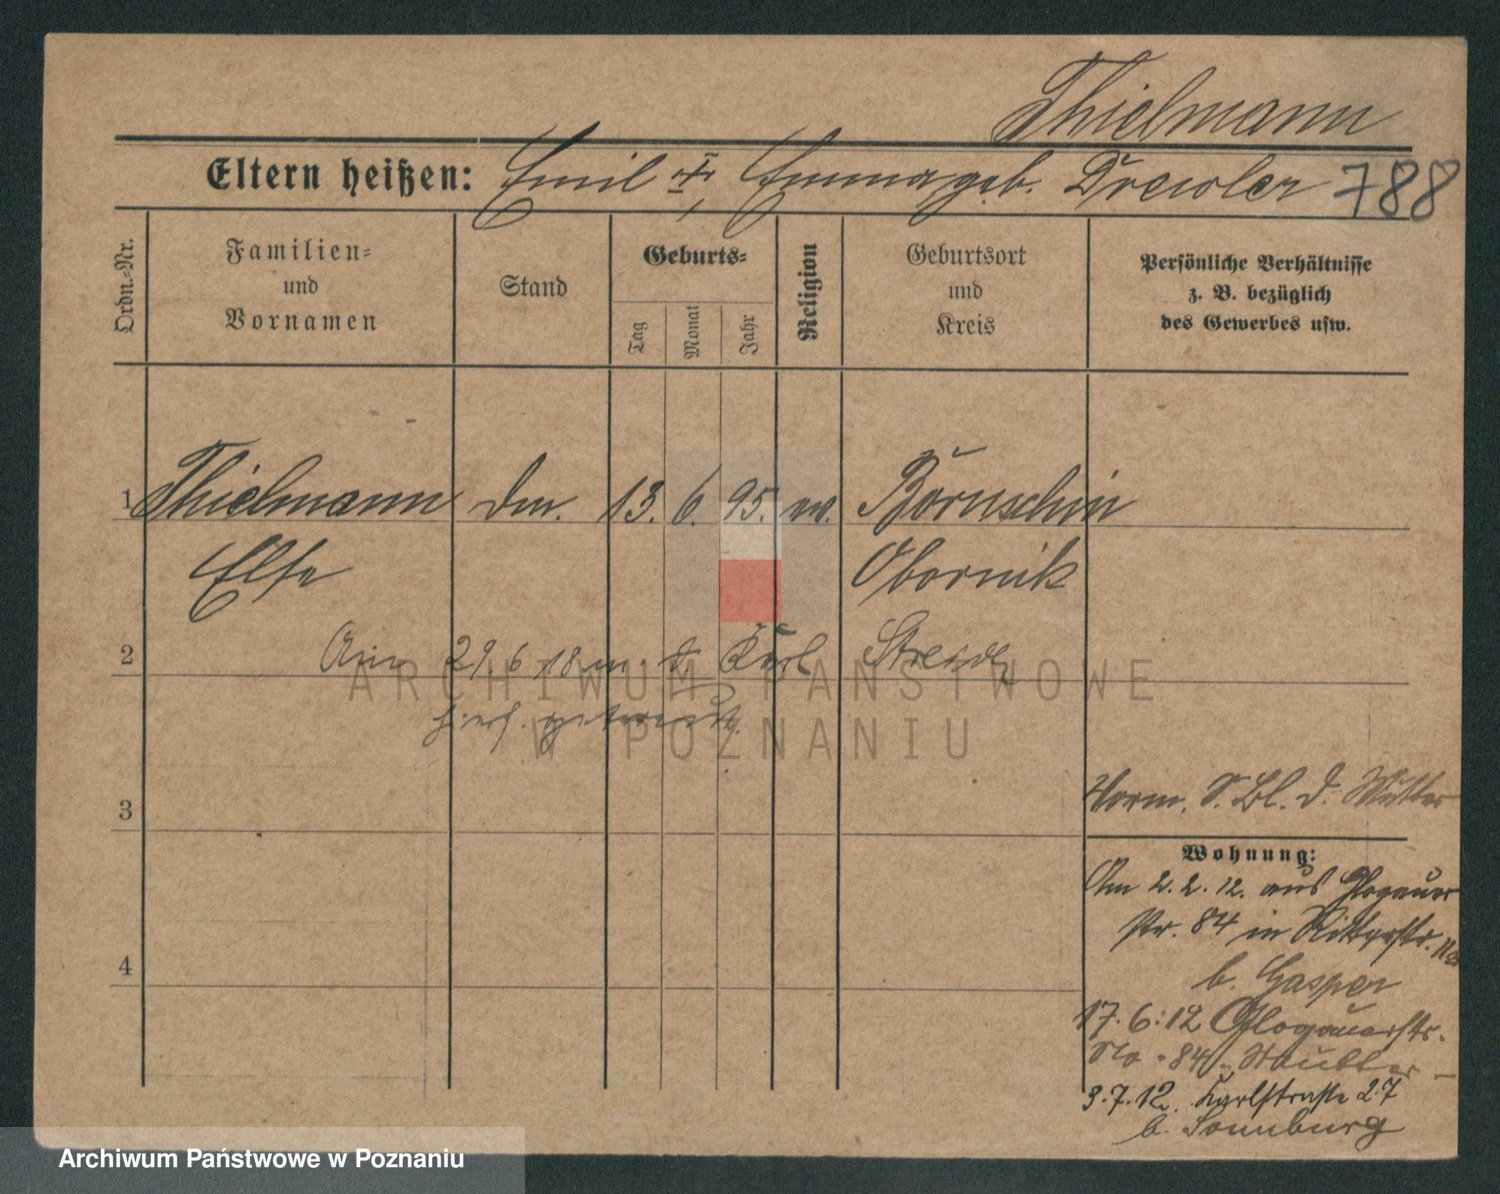 Thielmann
Eltern heißen: Emil u. Emma geb. Drewler 788
Ordn.-Nr.
Familien-
und
Vornamen
Stand
Geburts-
Tag
Monat
Jahr
Religion
Geburtsort
und
Kreis
Persönliche Verhältnisse
z. B. bezüglich
des Gewerbes usw.
1 Thielmann 13. 6. 95. ev. Bornschin
Else Obornik
2 Am 29 6 18 m. d. Karl
getraut.
ARCHIWUM PAŃSTWOWE
W POZNANIU
3
Vorm. S. Bl. d. Mutter
Wohnung:
Am 2. 2. 12. aus Glogauer
str. 84 in Ritterstr.
4
b. Gasper
17. 6. 12 Glogauerstr.
No 84 Mutter
3. 7. 12. Karlstraße 27
b. Sonnburg
Archiwum Państwowe w Poznaniu